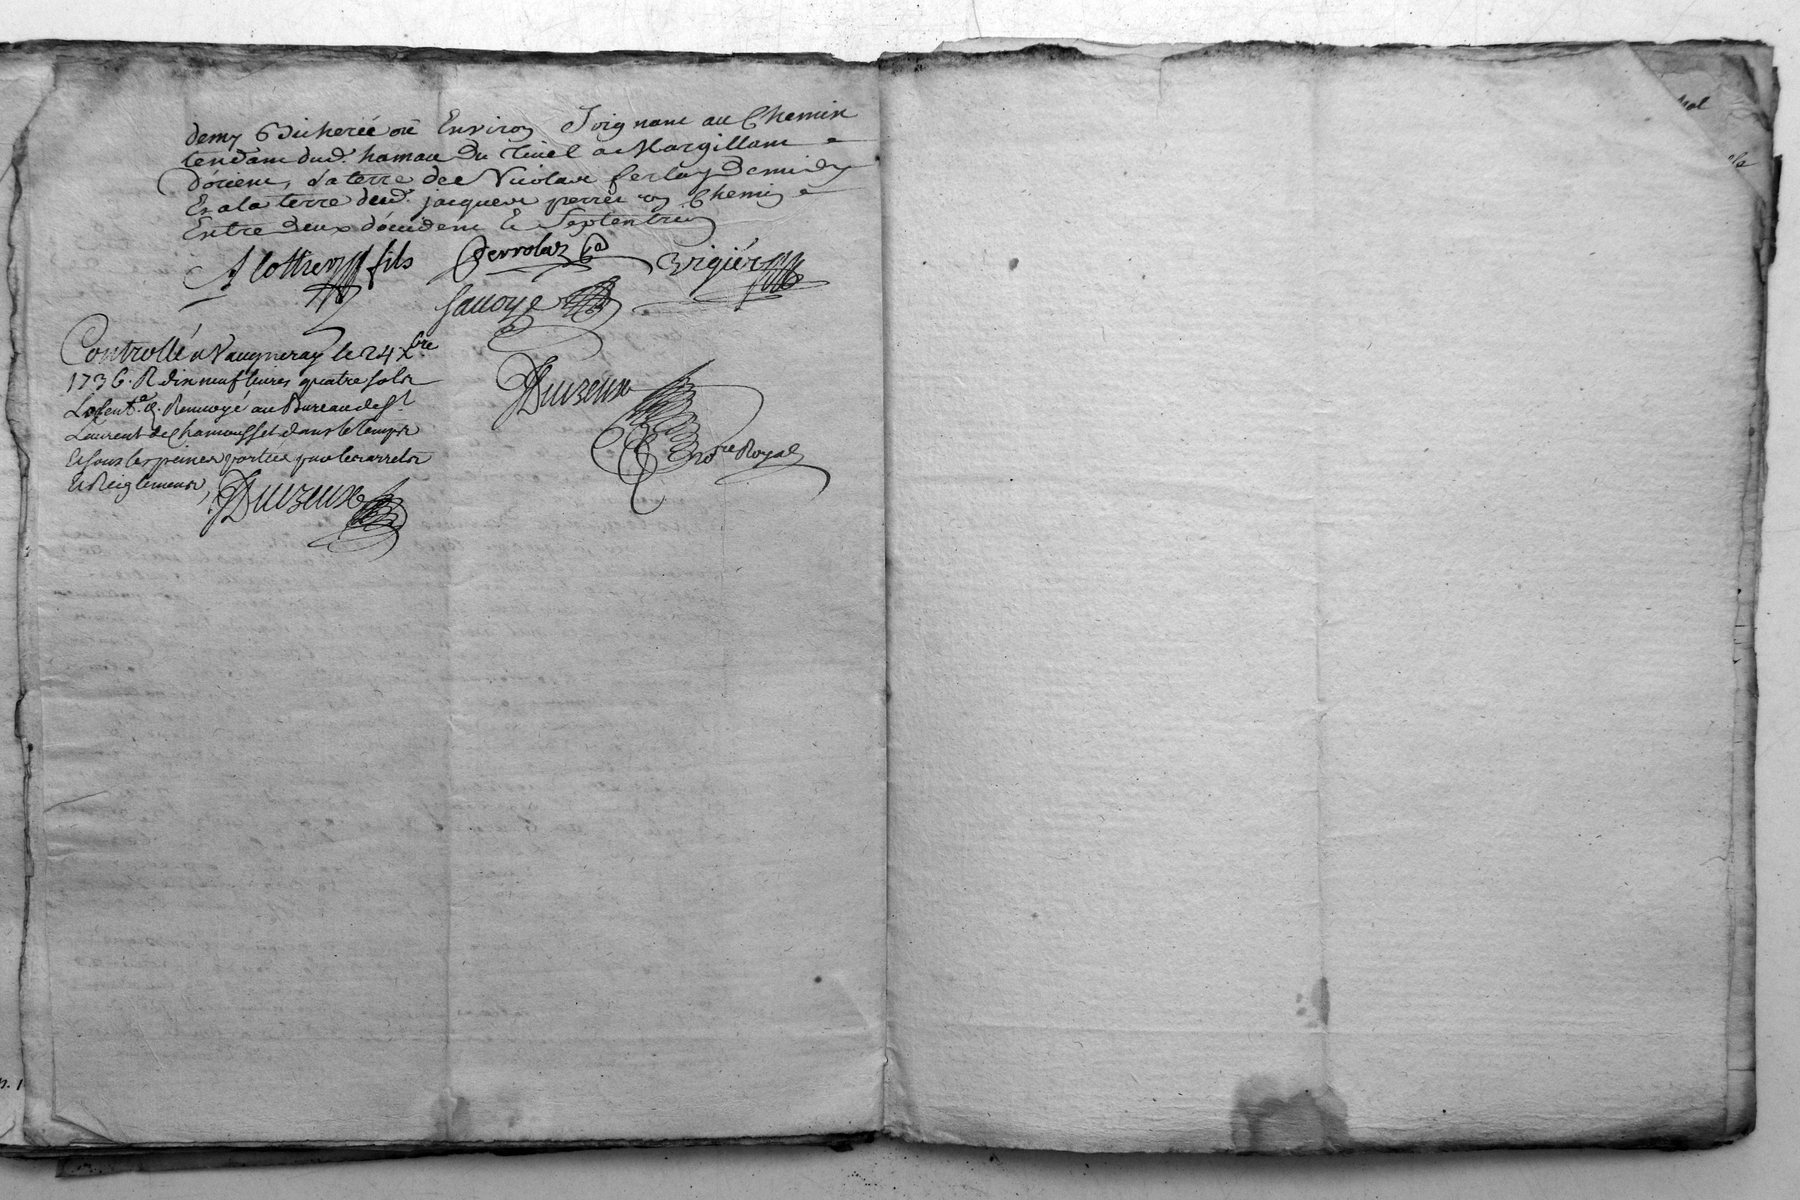 demy Bicherée ou Environ Joignant au Chemin
tendant dud. hamau du Tinel a Margillant
d'orient, la terre de Nicolas ferlay de midy
Et a la terre dud. jacques perret un Chemin
Entre deux d'occident Et Septentrion
fils
Savoye
Vigiér
Controllé a Vaugneray le 24 Xbre
1736. R dix neuf livres quatre sols
Renvoyé au Bureau de St
Laurent de Chamousset dans le temps
Et sous les peines portées par les arrets
Et Reiglements,
Duvzeux
Duvzeux
nore Royal